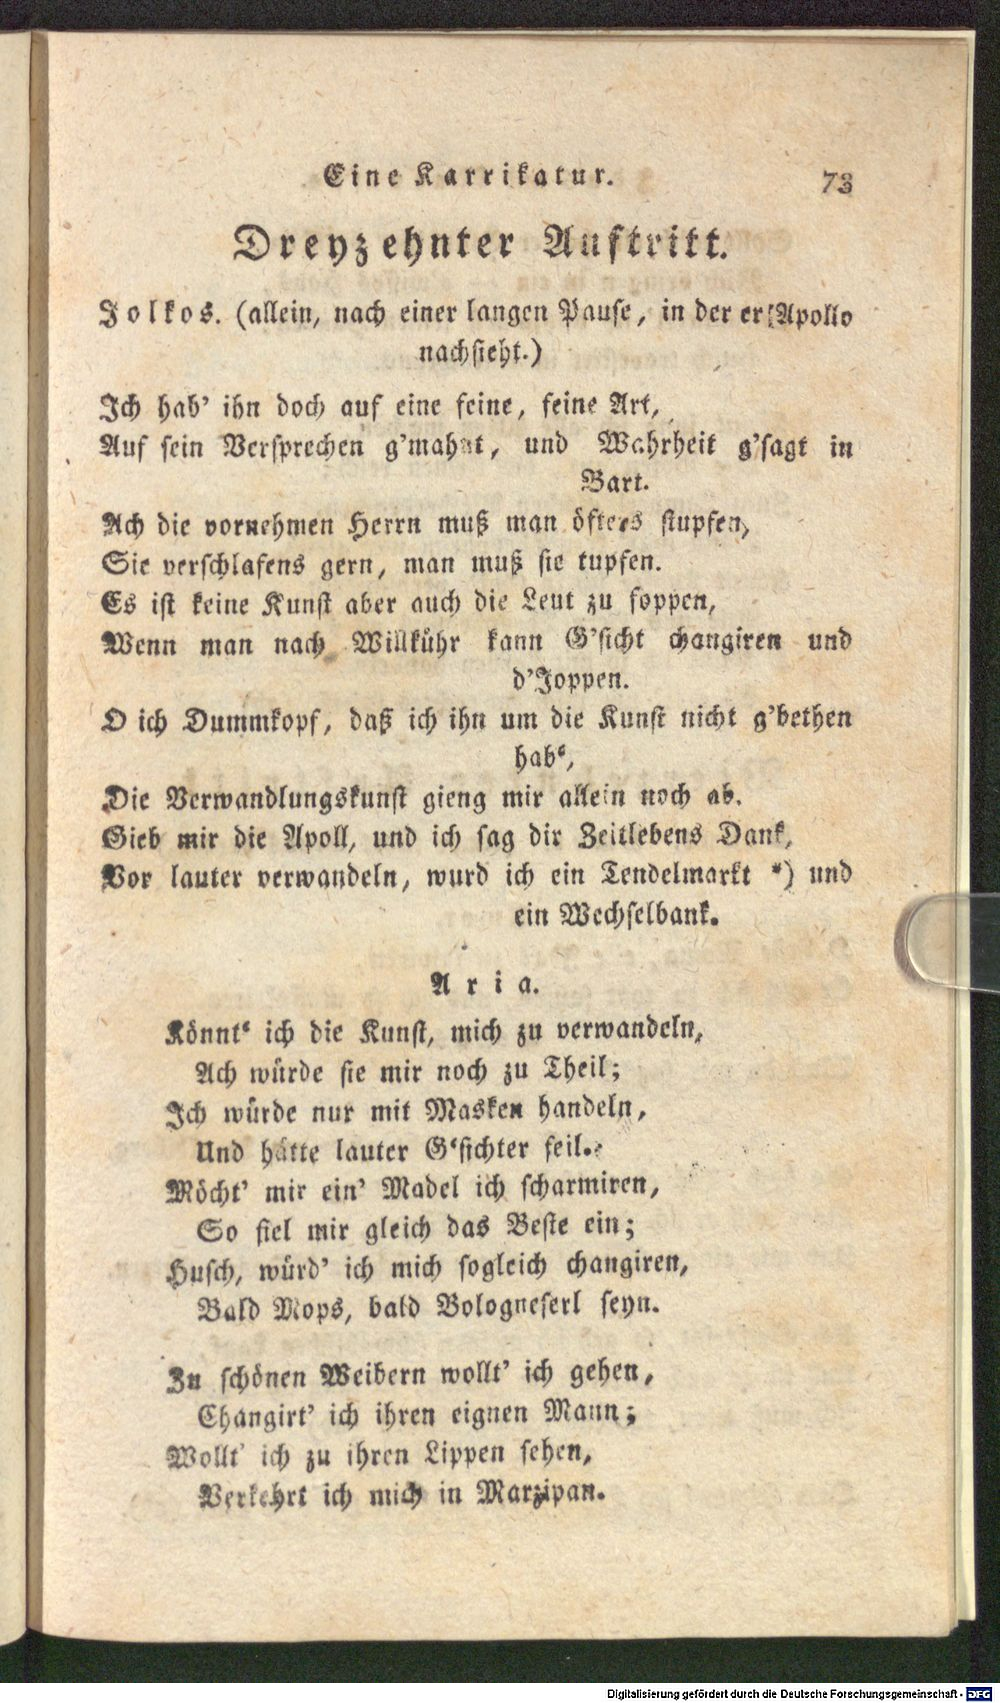 Eine Karrikatur. 73
Dreyzehnter Auftritt.
Jolkos. (allein, nach einer langen Pause, in der er Apollo
nachsieht.)
Ich hab' ihn doch auf eine feine, feine Art,
Auf sein Versprechen g'mahnt, und Wahrheit g'sagt in
Bart.
Ach die vornehmen Herrn muß man öfters stupfen,
Sie verschlafens gern, man muß sie tupfen.
Es ist keine Kunst aber auch die Leut zu foppen,
Wenn man nach Willkühr kann G'sicht changiren und
d'Joppen.
O ich Dummkopf, daß ich ihn um die Kunst nicht g'bethen
hab‘,
Die Verwandlungskunst gieng mir allein noch ab.
Gieb mir die Apoll, und ich sag dir Zeitlebens Dank,
Vor lauter verwandeln, wurd ich ein Tendelmarkt *) und
ein Wechselbank.
Aria.
Könnt‘ ich die Kunst, mich zu verwandeln,
Ach würde sie mir noch zu Theil;
Ich würde nur mit Masken handeln,
Und hätte lauter G‘sichter feil.
Möcht' mir ein' Madel ich scharmiren,
So fiel mir gleich das Beste ein;
Husch, würd' ich mich sogleich changiren,
Bald Mops, bald Bologneserl seyn.
Zu schönen Weibern wollt' ich gehen,
Changirt' ich ihren eignen Mann;
Wollt' ich zu ihren Lippen sehen,
Verkehrt ich mich in Marzipan.
Digitalisierung gefördert durch die Deutsche Forschungsgemeinschaft - DFG